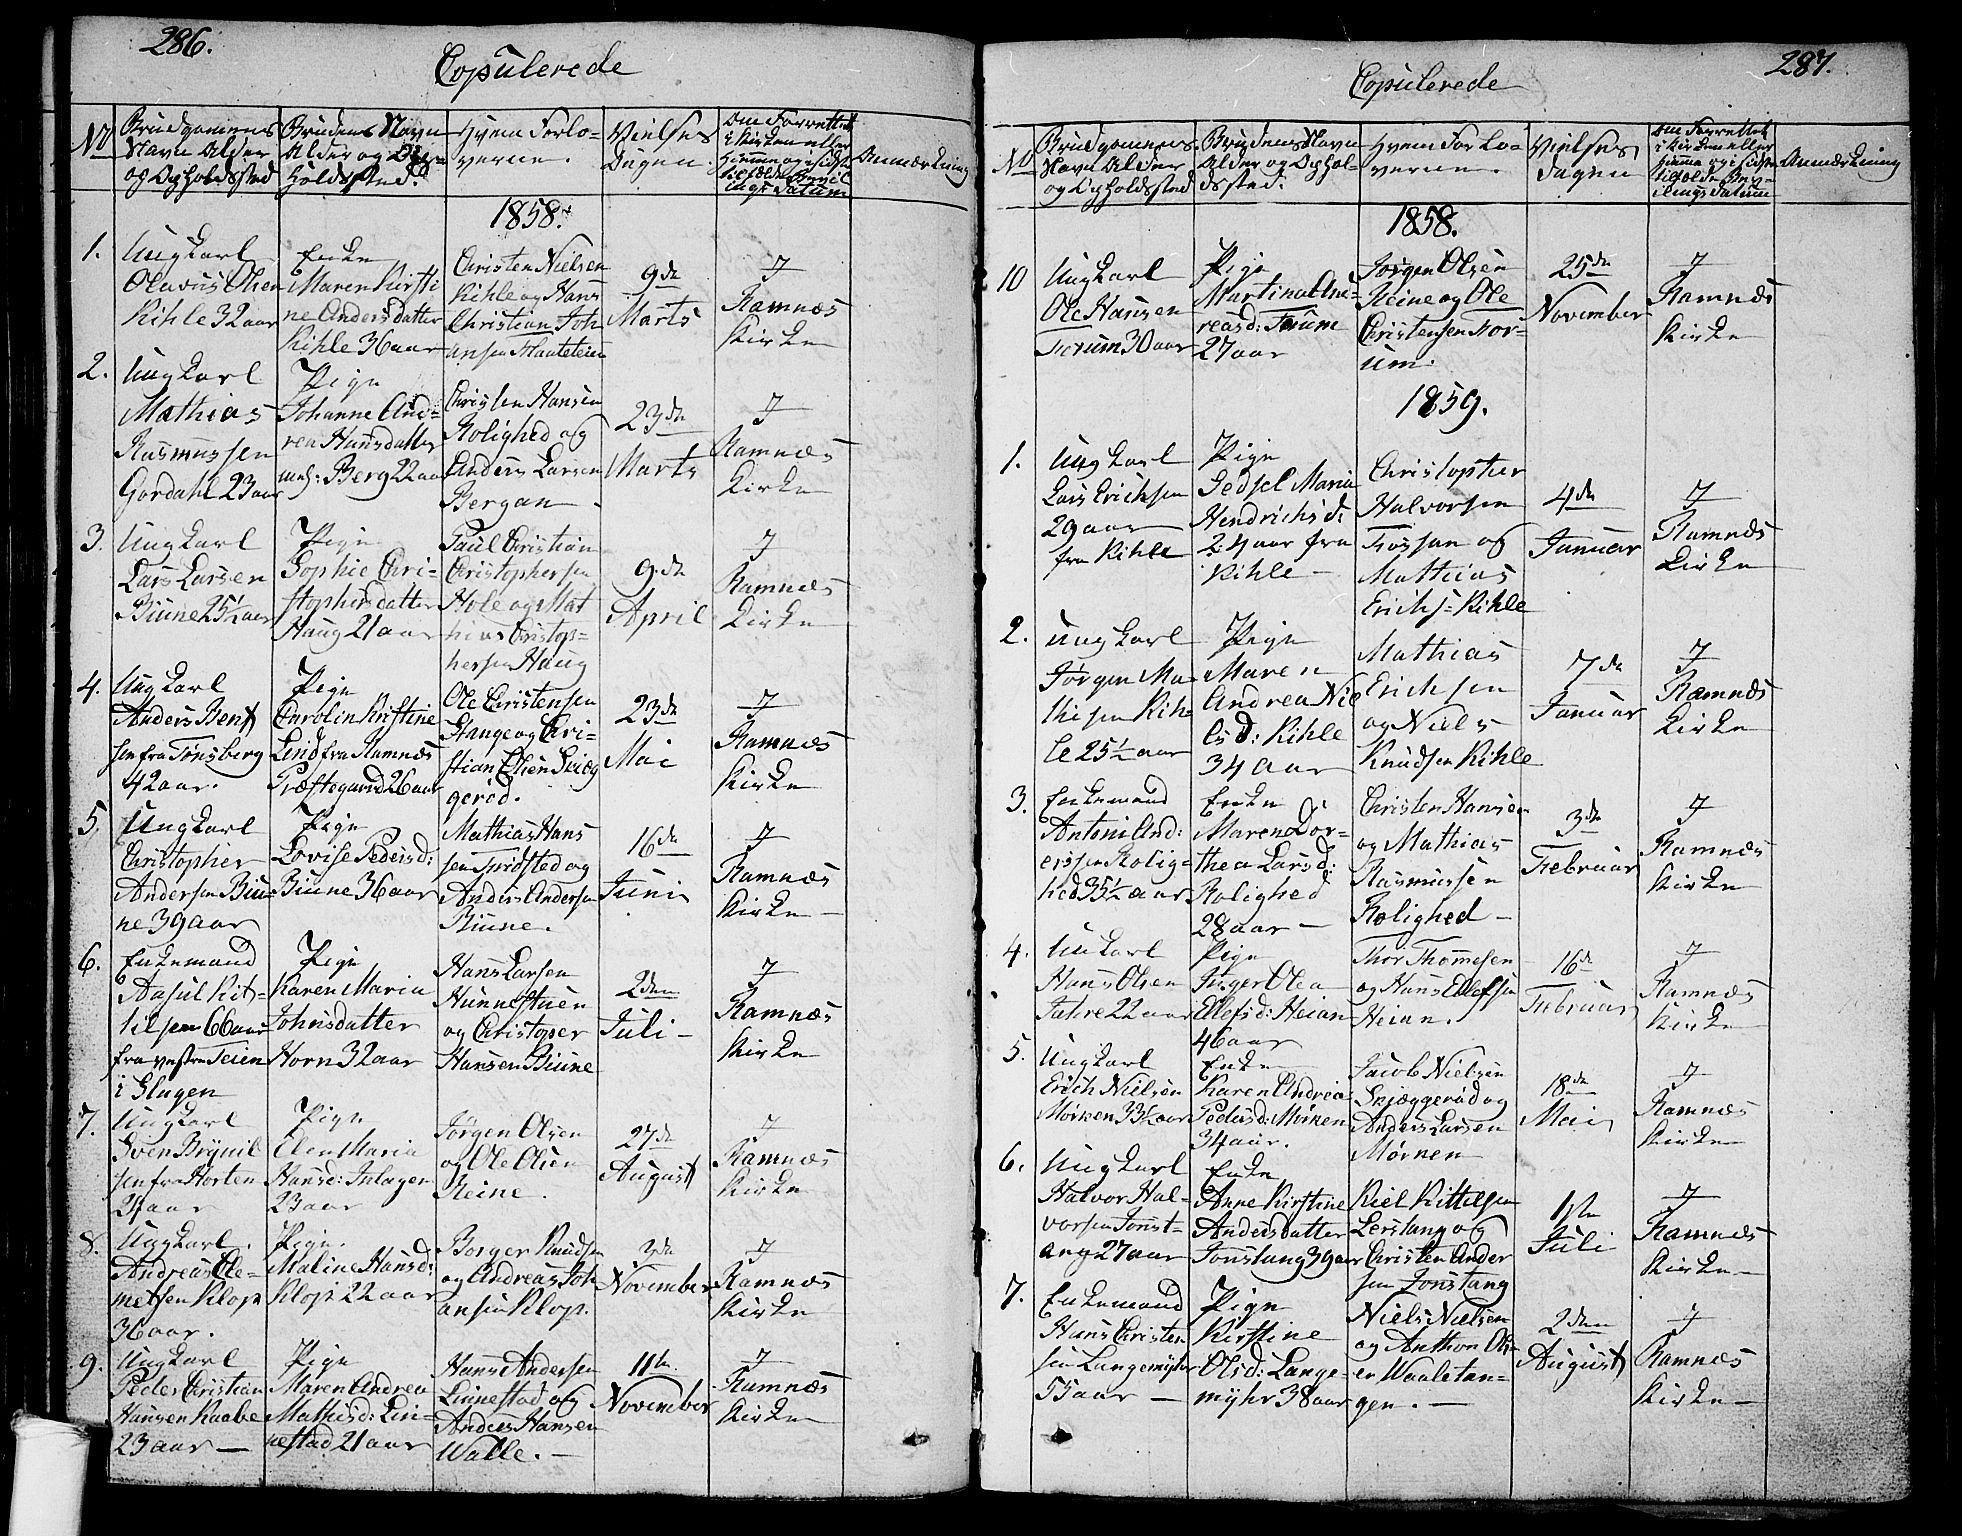 286.
Copulerede
No
Brudgomens
Navn Alder
og Opholdssted
Brudens Navn
Alder og Op-
holdssted.
Hvem Forlo-
verne.
Vielses
Dagen.
Om Forrettet
i Kirken eller
hjemme og i sidste
tilfælde Bevil-
lings Datum
Anmærkning
1858.
1.
Ungkarl
Olavus Olsen
Kihle 32 aar
Enke
Maren Kirsti
ne Andersdatter
Kihle 36 aar
Christen Nielsen
Kihle og Hans
Christian Joh
ansen
9de
Marts
I
Ramnæs
Kirke
2.
Ungkarl
Mathias
Rasmussen
Gordahl 23 aar
Pige
Johanne And-
rea Hansdatter
Berg 22 aar
Christen Hansen
Rolighed og
Anders Larsen
Bergan
23de
Marts
I
Ramnæs
Kirke
3.
Ungkarl
Lars Larsen
Biune 25½ aar
Pige
Sophie Chri-
stophersdatter
Haug 21 aar
Paul Christian
Christophersen
Hole og Mat
hias Christop-
hersen Haug
9de
April
I
Ramnæs
Kirke
4.
Ungkarl
Anders Bent
sen fra Tønsberg
42 aar.
Pige
Carolin Kirstine
Lind fra Ramnæs
Præstegaard 26 aar
Ole Christensen
Stange og Chri-
stian Olsen Skiæg
gerød.
23de
Mai
I
Ramnæs
Kirke
5.
Ungkarl
Christopher
Andersen Biu-
ne 39 aar
Pige
Lovise Pedersd:
Biune 36 aar
Mathias Hans
sen Tvidsted og
Anders Andersen
Biune.
16de
Juni
I
Ramnæs
Kirke
6.
Enkemand
Aasul Kit-
tilsen 66 aar
fra vestre Teien
i Slagen
Pige
Karen Maria
Johnsdatter
Horn 32 aar
Hans Larsen
Hunnestuen
og Christoper
Hansen Biune
2den
Juli
I
Ramnæs
Kirke
7.
Ungkarl
Sven Brynil
sen fra Horten
aar
Pige
Elen Maria
Hansd: Inlagen
23 aar
Jørgen Olsen
og Ole Olsen
Reine.
27de
August
I
Ramnæs
Kirke
8.
Ungkarl.
Andreas Cle-
metsen Klop
36 aar.
Pige.
Maline Hansd:
Klop 22 aar
Borger Knudsen
og Andreas Joh
ansen Klop.
3de
November
I
Ramnæs
Kirke
9.
Ungkarl
Peder Christian
Hansen Raabe
23 aar
Pige
Maren Andrea
Mathisd: Lin-
nestad 21 aar
Hans Andersen
Linnestad og
Anders Hansen
Walle.
11te
November
I
Ramnæs
Kirke
287.
Copulerede
No
Brudgomens
Navn Alder
og Opholdssted
Brudens Navn
Alder og Ophol-
dssted.
Hvem Forlo-
verne.
Vielses
Dagen
Om Forrettet
i Kirken eller
hjemme og i sidste
tilfælde Bev-
ilings Datum
Anmærkning
1858.
10
Ungkarl
Ole Hansen
Forum 30 aar
Pige
Martina And-
reasd: Forum
27 aar
Jørgen Olsen
Reine og Ole
Christensen For-
um.
25de
November
I
Ramnæs
Kirke
1859.
1.
Ungkarl
Lars Erichsen
29 aar
fra Kihle
Pige
Gedsel Maria
Hendrichsd:
24 aar fra
Kihle
Christopher
Halvorsen
Fossan og
Mathias
Erichs= Kihle
4de
Januar
I
Ramnæs
Kirke
2.
Ungkarl
Jørgen Ma-
thisen Kih-
le 25½ aar
Pige
Maren
Andrea Nie
lsd: Kihle
34 aar
Mathias
Erichsen
og Niels
Knudsen Kihle
7de
Januar
I
Ramnæs
Kirke
3.
Enkemand
Antoni And:
ersen Rolig-
hed 35½ aar
Enke
Maren Dor-
thea Larsd:
Rolighed
28 aar
Christen Hansen
og Mathias
Rasmussen
Rolighed
3de
Februar
I
Ramnæs
Kirke
4.
Unkarl
Hans Olsen
22 aar
Pige
Inger Olea
Ellefsd: Heian
46 aar
Thor Thommesen
og Hans Ellefsen
Heian.
16de
Februar
I
Ramnæs
Kirke
5.
Ungkarl
Erich Nielsen
Mørken 33½ aar
Enke
Karen Andrea
Pedersd: Mørken
34 aar.
Jacob Nielsen
Skjæggerød og
Anders Larsen
Mørken
18de
Mai
I
Ramnæs
Kirke
6.
Ungkarl
Halvor Hal-
vorsen Jonst-
ang 27 aar
Enke
Anne Kirstine
Andersdatter
Jonstang 39 aar
Kiel Kittelsen
Lerstang og
Christen Ander
sen Jonstang
1ste
Juli
I
Ramnæs
Kirke
7.
Enkemand
Hans Christen
sen Langemyhr
55 aar
Pige
Kirstine
Olsd: Lange-
myhr 38 aar
Niels Nielsen
og Anthon Ols-
en Waaletan-
gen.
2den
August
I
Ramnæs
Kirke